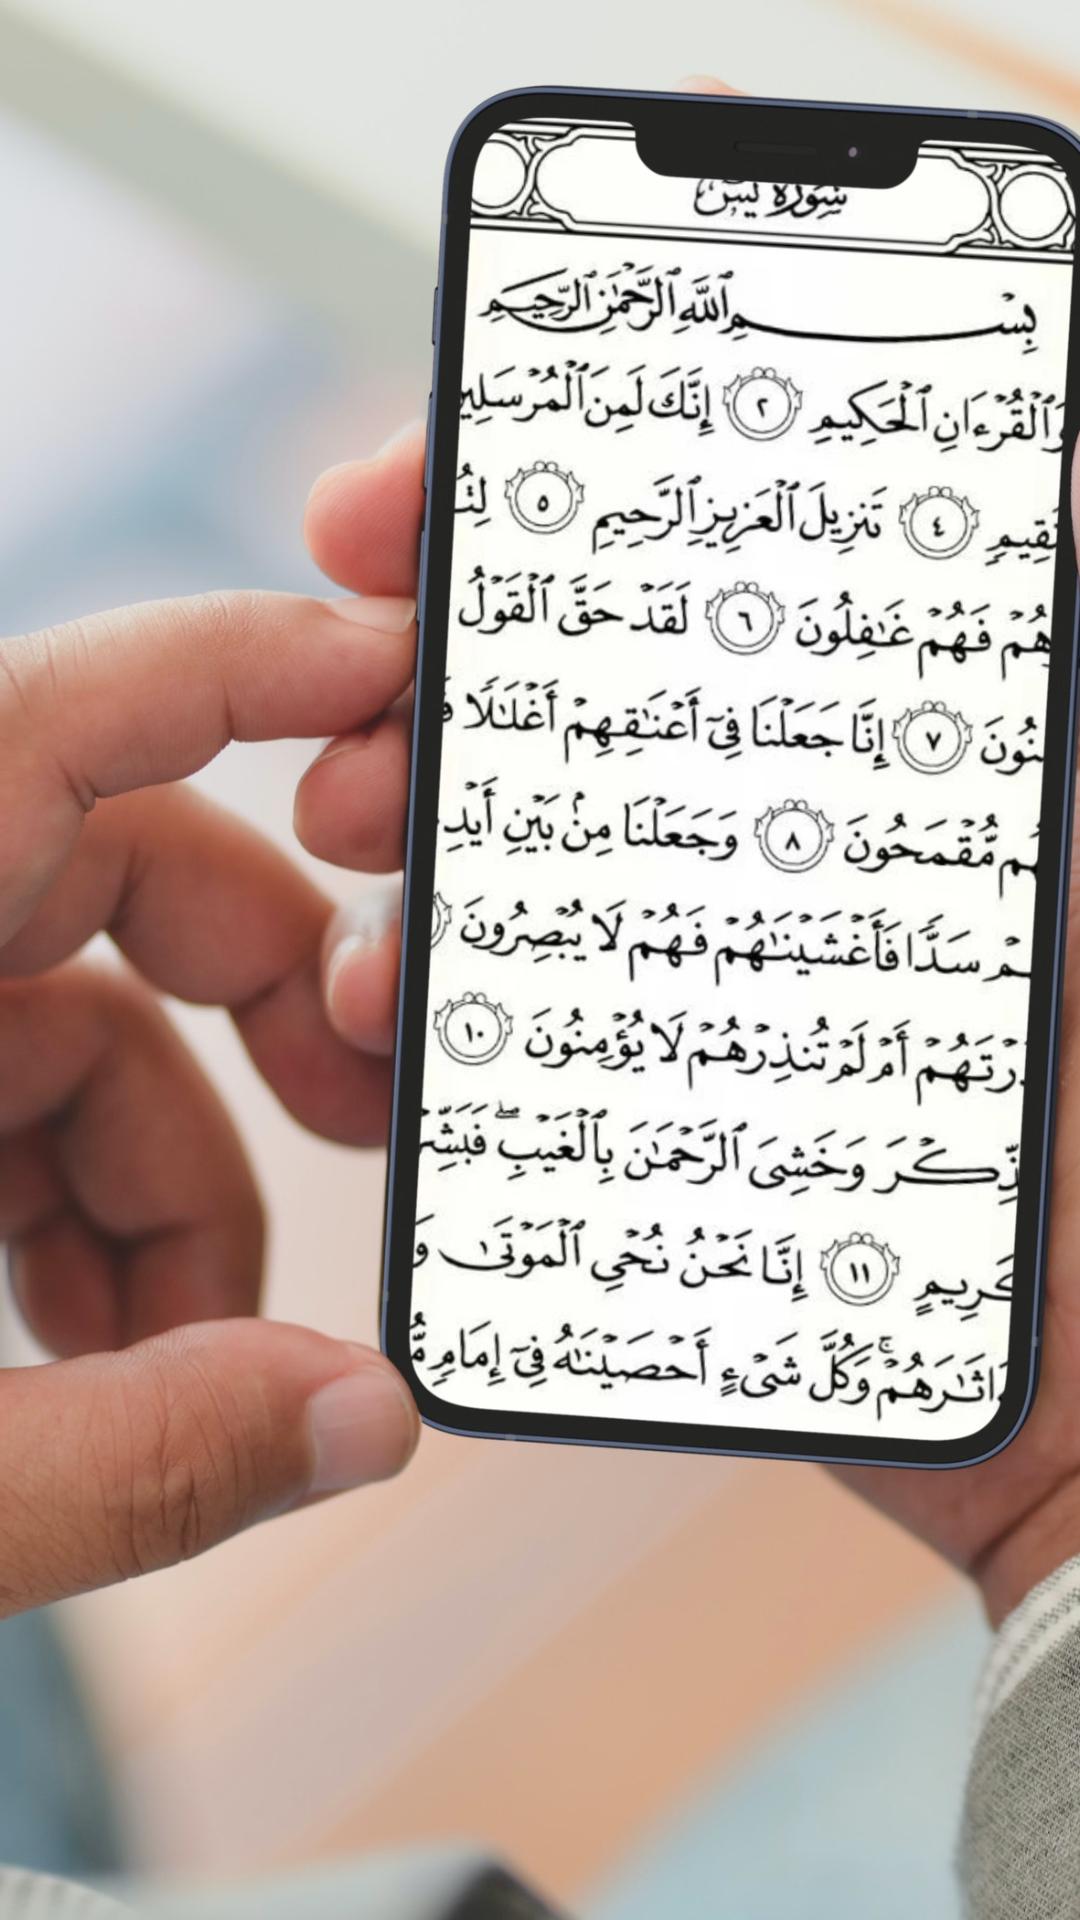 سُورَةُ يسٓ
بِسْمِ ٱللَّهِ ٱلرَّحْمَٰنِ ٱلرَّحِيمِ
وَٱلْقُرْءَانِ ٱلْحَكِيمِ ٢ إِنَّكَ لَمِنَ ٱلْمُرْسَلِين
تَقِيمٍ ٤ تَنزِيلَ ٱلْعَزِيزِ ٱلرَّحِيمِ ٥ لِتُ
هُمْ فَهُمْ غَٰفِلُونَ ٦ لَقَدْ حَقَّ ٱلْقَوْلُ
مِنُونَ ٧ إِنَّا جَعَلْنَا فِىٓ أَعْنَٰقِهِمْ أَغْلَٰلًا فَ
هُم مُّقْمَحُونَ ٨ وَجَعَلْنَا مِنۢ بَيْنِ أَيْدِ
هِمْ سَدًّا فَأَغْشَيْنَٰهُمْ فَهُمْ لَا يُبْصِرُونَ
ذَرْتَهُمْ أَمْ لَمْ تُنذِرْهُمْ لَا يُؤْمِنُونَ ١٠
ذِّكْرَ وَخَشِىَ ٱلرَّحْمَٰنَ بِٱلْغَيْبِ ۖ فَبَشِّرْ
كَرِيمٍ ١١ إِنَّا نَحْنُ نُحْىِ ٱلْمَوْتَىٰ وَ
ءَاثَٰرَهُمْ ۚ وَكُلَّ شَىْءٍ أَحْصَيْنَٰهُ فِىٓ إِمَامٍ مُّ